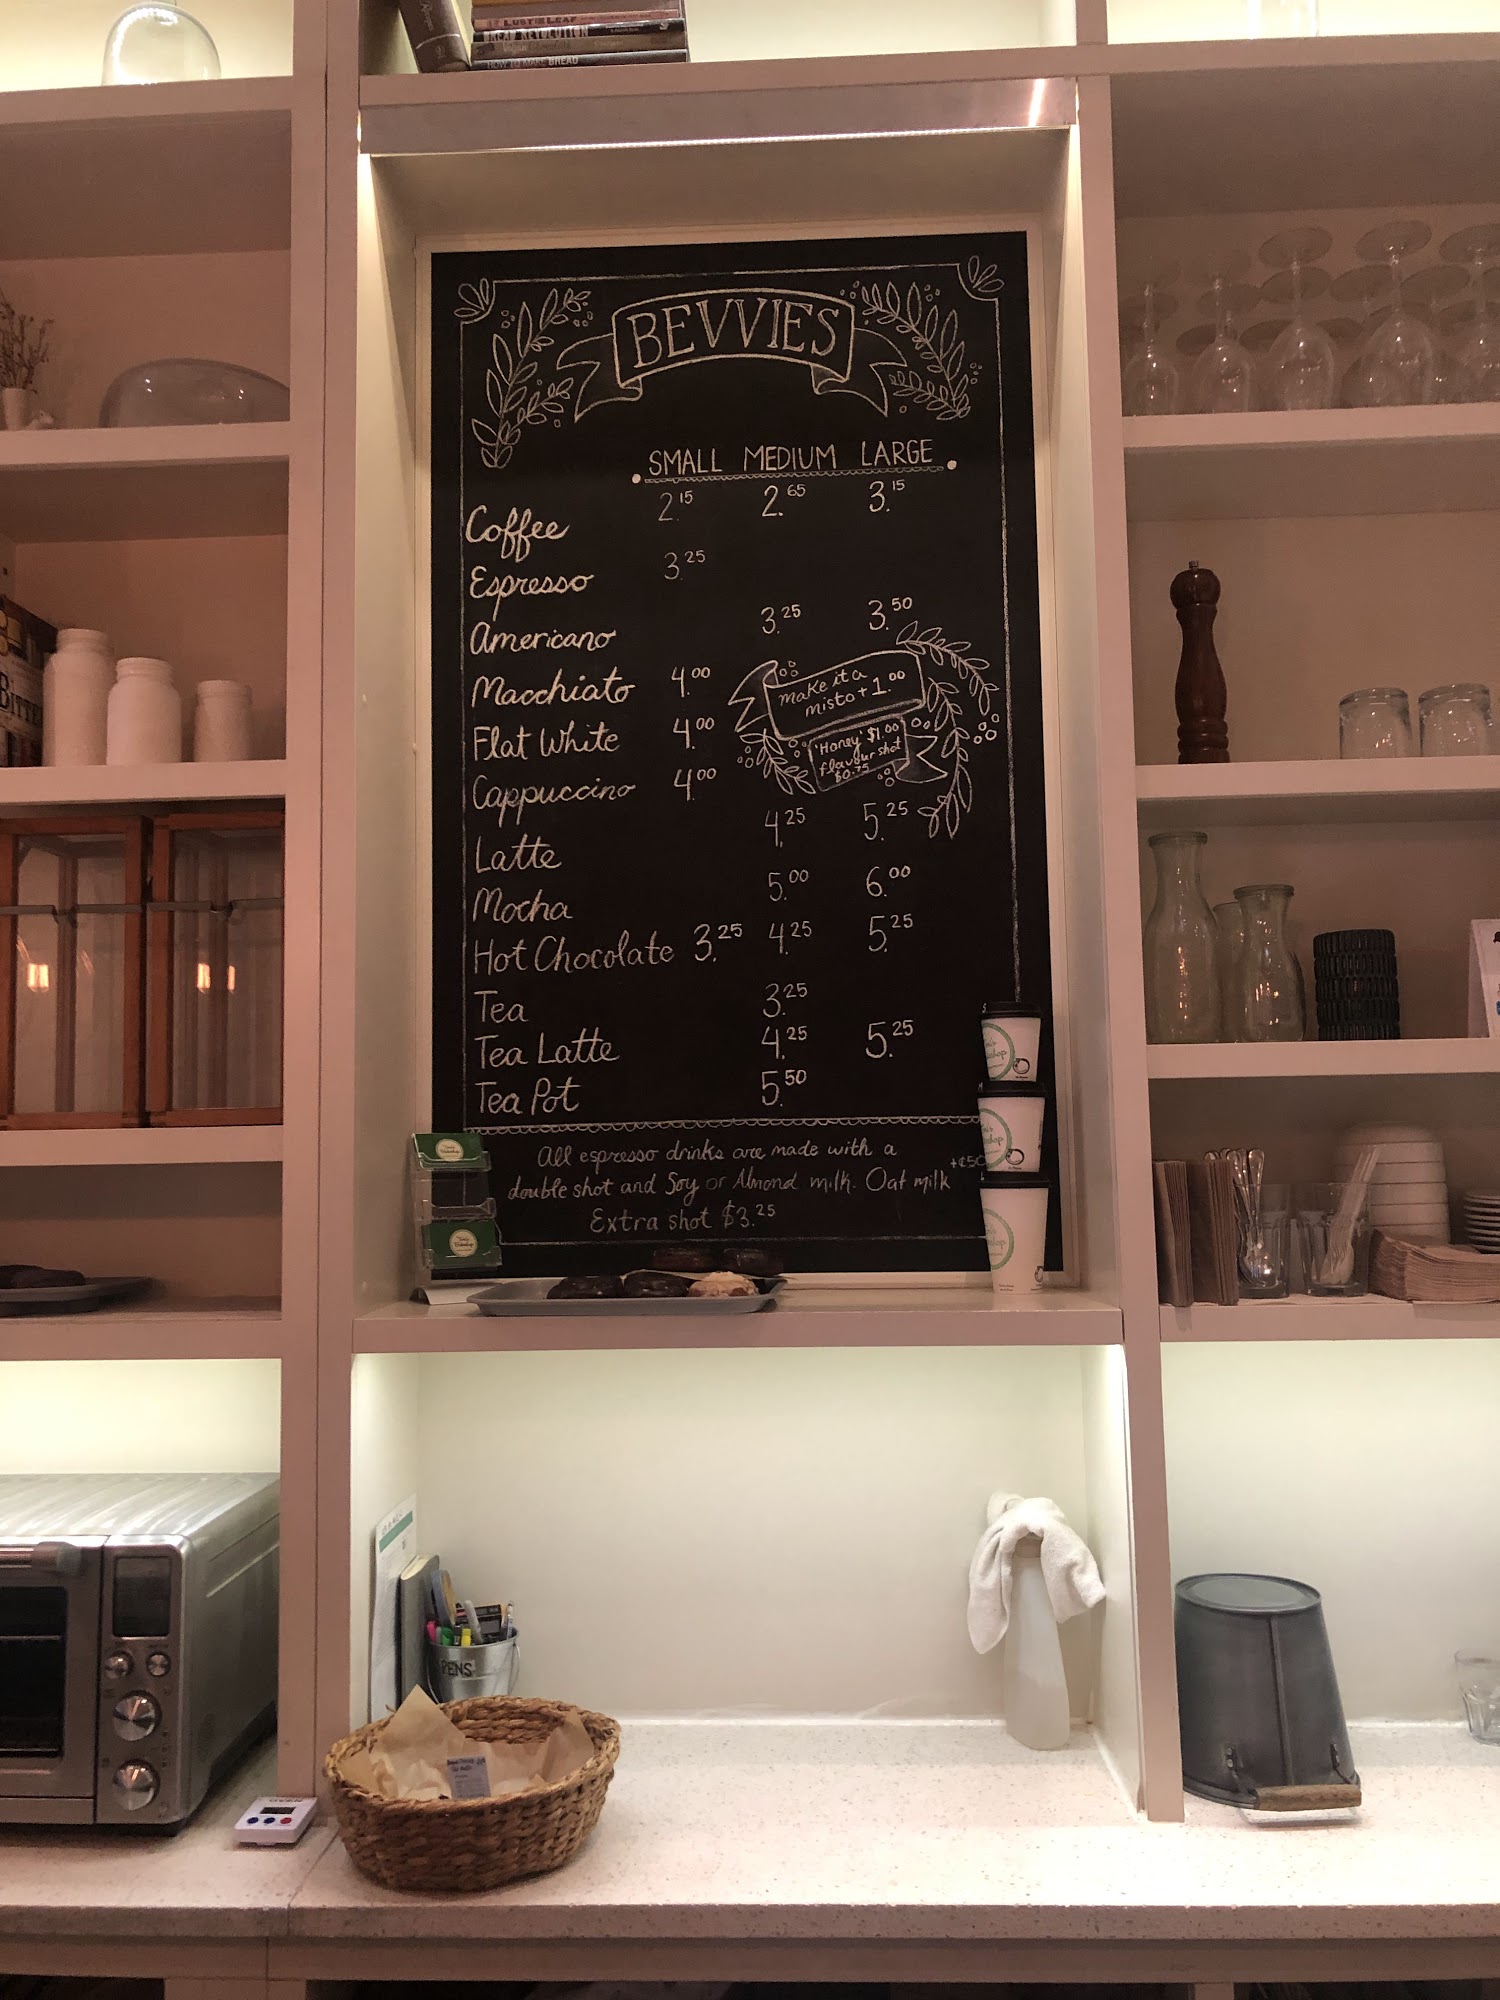 LUST for LEAF
BREAD REVOLUTION
Vegan Chocolate
HOW TO MAKE BREAD
BEVVIES
SMALL MEDIUM LARGE
Coffee 2.15 2.65 3.15
Espresso 3.25
Americano 3.25 3.50
Macchiato 4.00
make it a
misto + 1.00
Flat White 4.00
'Honey' $1.00
flavour shot
$0.75
Cappuccino 4.00
Latte 4.25 5.25
Mocha 5.00 6.00
Hot Chocolate 3.25 4.25 5.25
Tea 3.25
Tea Latte 4.25 5.25
Tea Pot 5.50
All espresso drinks are made with a
double shot and Soy or Almond milk. Oat milk
Extra shot $3.25
BITTE
PENS